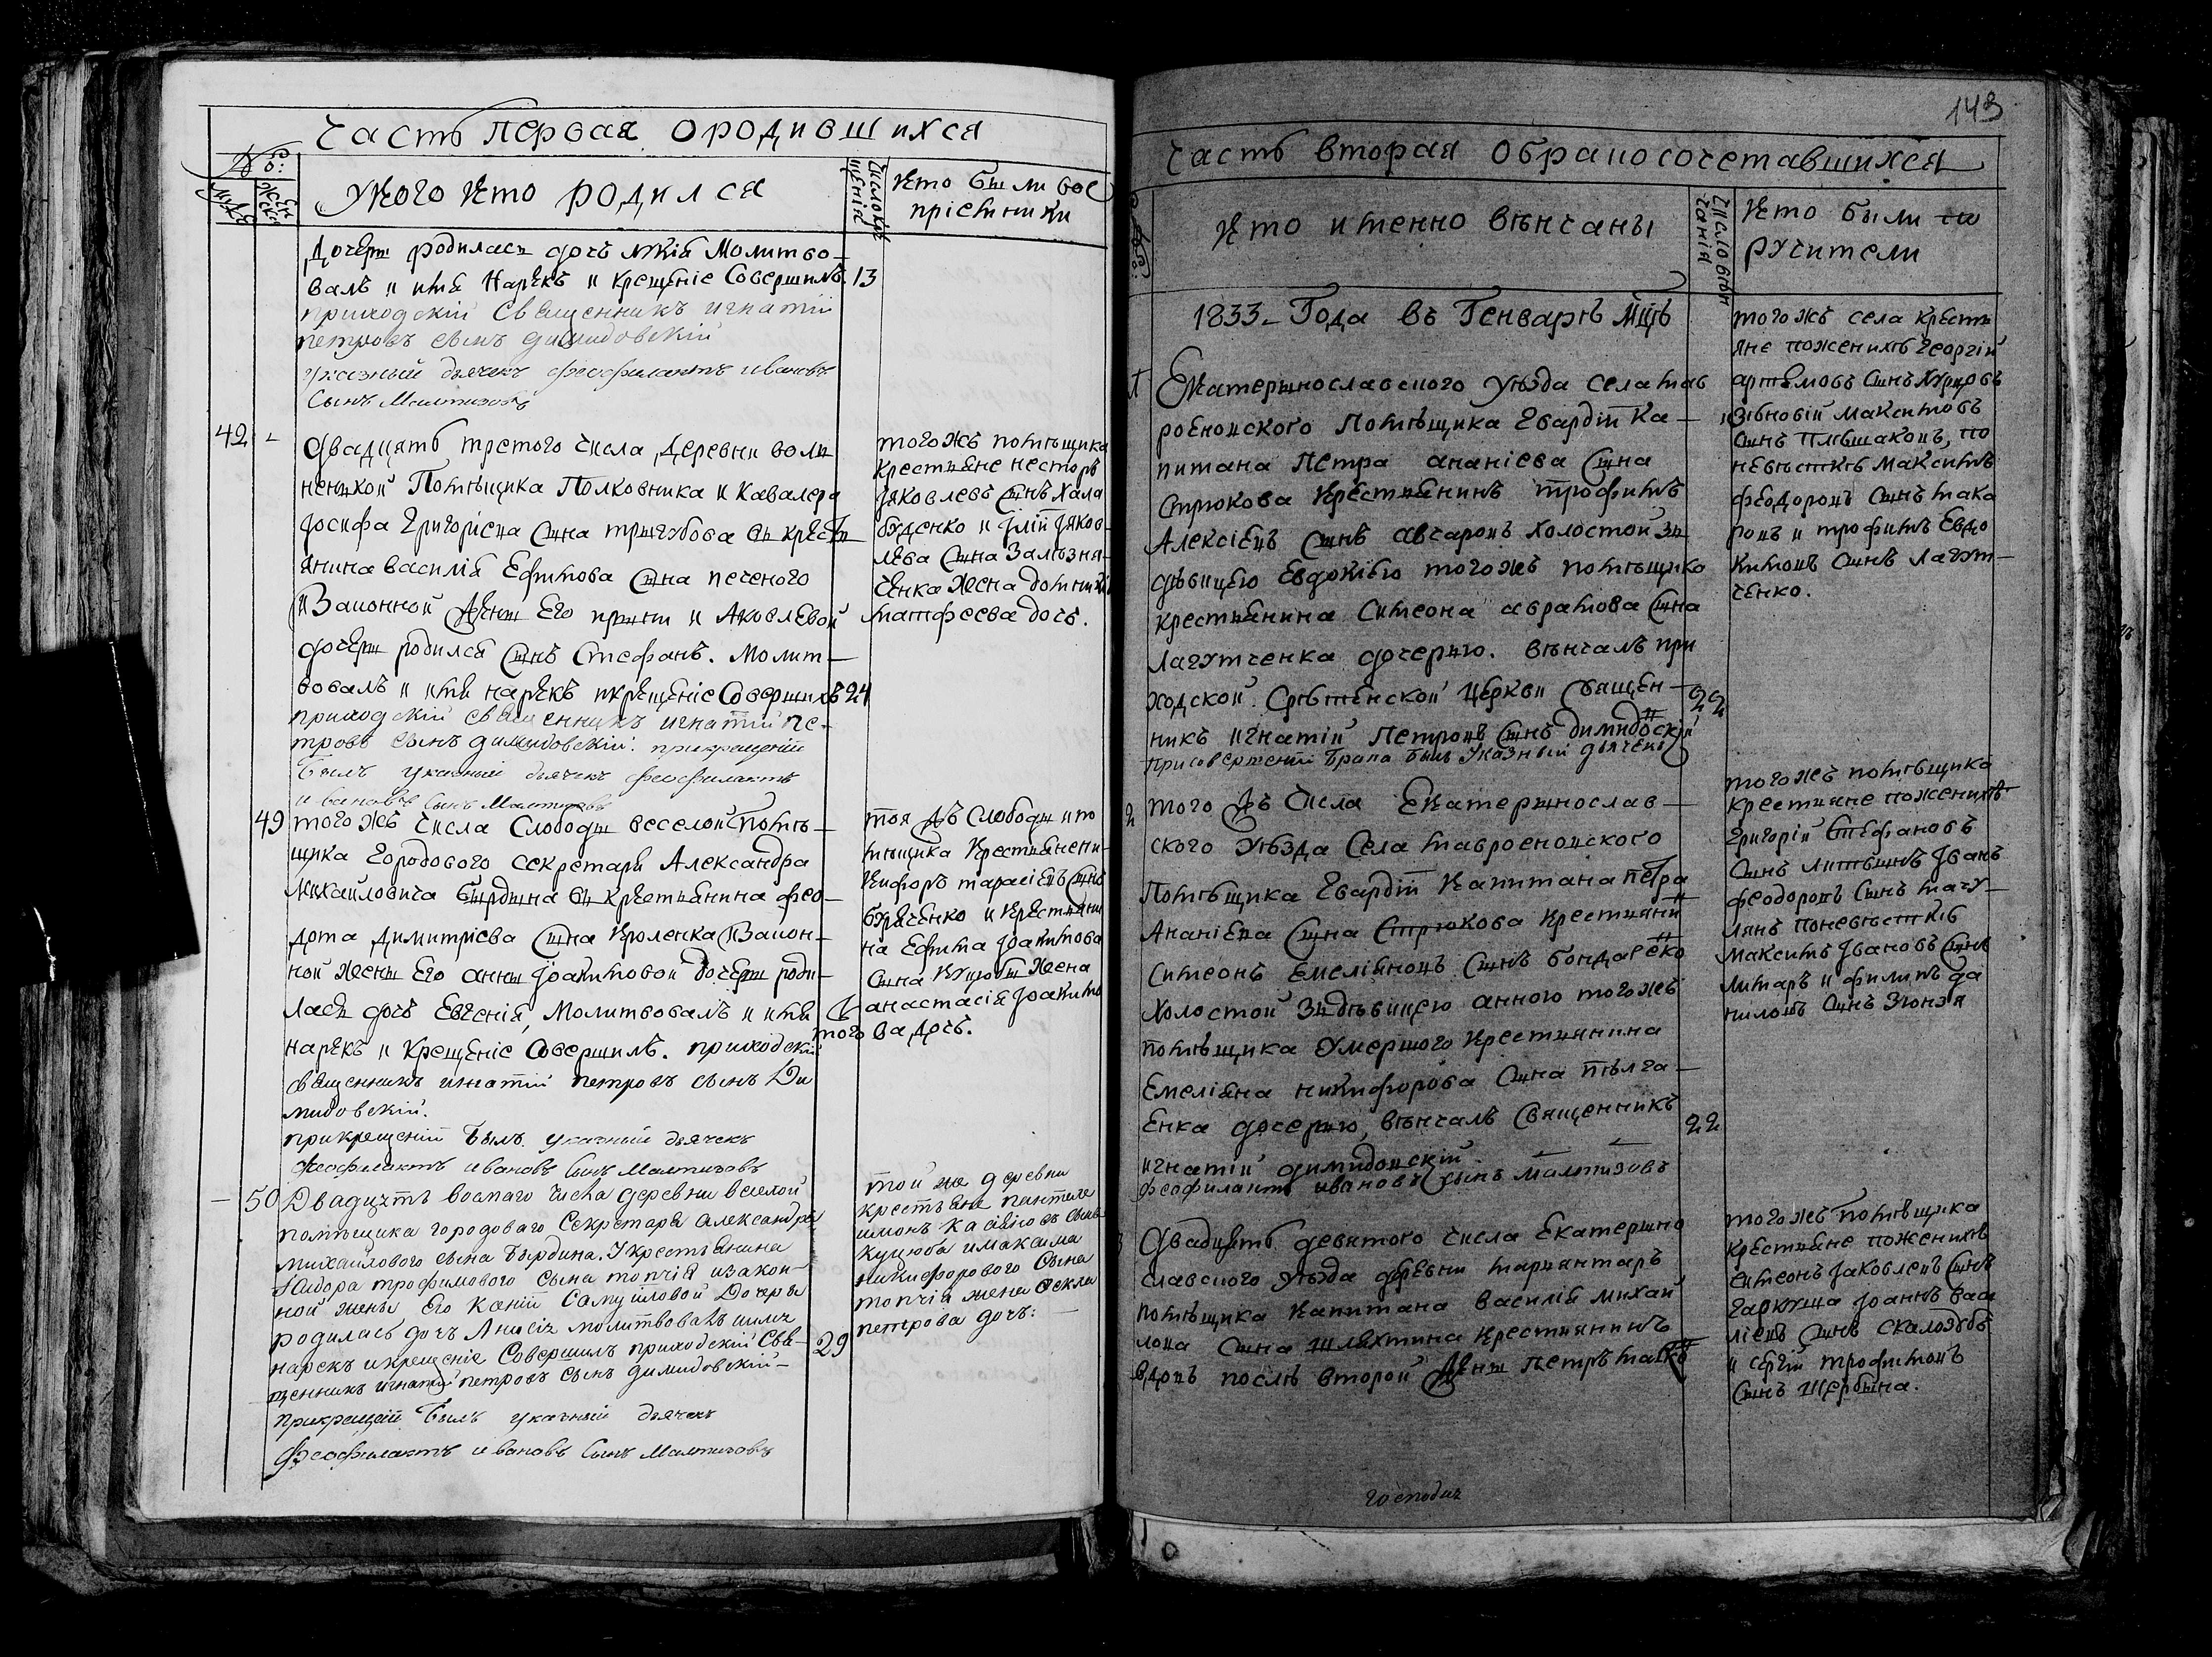 Часть первая о родившихся
№:
Муж
женск
У кого кто родился
Число кре
щенія
Кто были вос
пріемники
Дочери родилась дочь Молитво-
валъ и имя Нарекъ и крещеніе Совершилъ 13
приходскій Священникъ игнатій
петровъ сынъ димидовскій
указный дьячекъ феофилактъ ивановъ
Сынъ
42 -
двадцять третого числа деревни воль
ненкой Помѣщика Полковника и Кавалера
Іосифа Григоріева Сына тригубова въ крест
янина василія Ефимова Сына печеного
и Законной Жены Его и Яковлевой
дочери родился Сынъ Стефанъ. Молит-
вовалъ и имя нарекъ и крещеніе Совершилъ 24
приходскій священникъ игнатій пе-
тровъ сынъ димидовскій. при крещеніи
былъ указный дьячекъ феофилактъ
ивановъ сынъ
того жъ помѣщика
Крестьяне несторъ
Яковлевъ Сынъ Хала
буденко и Яков-
лева Сына Зализня-
ченка Жена
матфеева дочь.
49
того жъ числа Слободы веселой Помѣ-
щика городового секретаря Александра
Михайловича Бырдина въ Крестьянина фео-
дота Димитріева Сына Кроленка и Закон-
ной жены Его анны Іоакимовой дочери роди-
лась дочь Евгенія, Молитвовалъ и имя
нарекъ и Крещеніе Совершилъ. приходскій того
священникъ игнатій петровъ сынъ Ди
мидовскій.
при крещеніи былъ указный дьячекъ
феофилактъ ивановъ сынъ
тоя жъ Слободы и по
мѣщика Крестьяне ни-
кифоръ тарасіевъ Сынъ
и Крестьяни
на Ефима Іоакимова
Сына Жена
анастасія Іоакимо
ва дочь.
- 50
Двадцять восмаго числа деревни веселой
помѣщика городоваго Секретаря александра
михайлового сына Бырдина. У крестьянина
трофимового сына топчія и закон-
ной жены Его Ксеніи Самуиловой Дочери
родилась дочь Анисія молитвовалъ и имя
нарекъ и крещеніе Совершилъ приходскій Свя- 29
щенникъ игнатій петровъ сынъ димидовскій-
при крещеніи былъ указный дьячекъ
феофилактъ ивановъ сынъ
той же деревни
крестьяне пантеле
имонъ сынъ
куцюба и максима
никифорового Сына
топчія жена фекла
петрова дочь:
143
Часть вторая о бракосочетавшихся
Кто именно вѣнчаны
Число вѣн
чанія
Кто были по
ручители
1833- Года въ Генварѣ мцѣ
1
Екатеринославского уѣзда села мав
роенонского Помѣщика Гвардіи Ка-
питана Петра ананіева Сына
Стрюкова Крестьянинъ трофимъ
Алексіевъ Сынъ холостой зъ
дѣвицею Евдокіею того жъ помѣщика
крестьянина Симеона аврамова Сына
Лагутченка дочерью. вѣнчалъ при
ходской Срѣтенской церкви Священ- 22
никъ игнатій Петровъ Сынъ димидоскій
при совершеніи брака былъ Указный дьячекъ
того жъ села крестъ
яне по женихѣ георгій
артемовъ Сынъ
Зѣновій макситовъ
Сынъ, по
невѣсткѣ максимъ
феодоровъ Сынъ мака
ровъ и трофимъ Евдо
кимовъ Сынъ лагут-
ченко.
2
того жъ числа Екатеринослав-
ского уѣзда Села мавроенонского
Помѣщика Гвардіи Капитана Петра
Ананіева Сына Стрюкова Крестянин
Симеонъ Емеліяновъ Сынъ бондареко
Холостой зъ дѣвицею анною того жъ
помѣщика Умершого Крестьянина
Емеліяна никифорова Сына
дочерью, вѣнчалъ Священникъ 22
игнатій димидовскій.
феофилактъ ивановъ сынъ
того жъ помѣщика
Крестьяне по женихѣ
григорій Стефановъ
Сынъ Іванъ
феодоровъ Сынъ
по невѣсткѣ
Максимъ Івановъ Сынъ
и филипъ да
ниловъ Сынъ
3
Двадцять девятого числа Екатерино
славского уѣзда деревни
помѣщика капитана василія михай
лова Сына Крестьянинъ
вдовъ послѣ второй Жены Петръ
того жъ помѣщика
Крестьяне по женихѣ
симеонъ Яковлевъ Сынъ
гаркуша Іоаннъ васи
ліевъ Сынъ скалозубъ
и сергій трофимовъ
Сынъ щербина.
господах